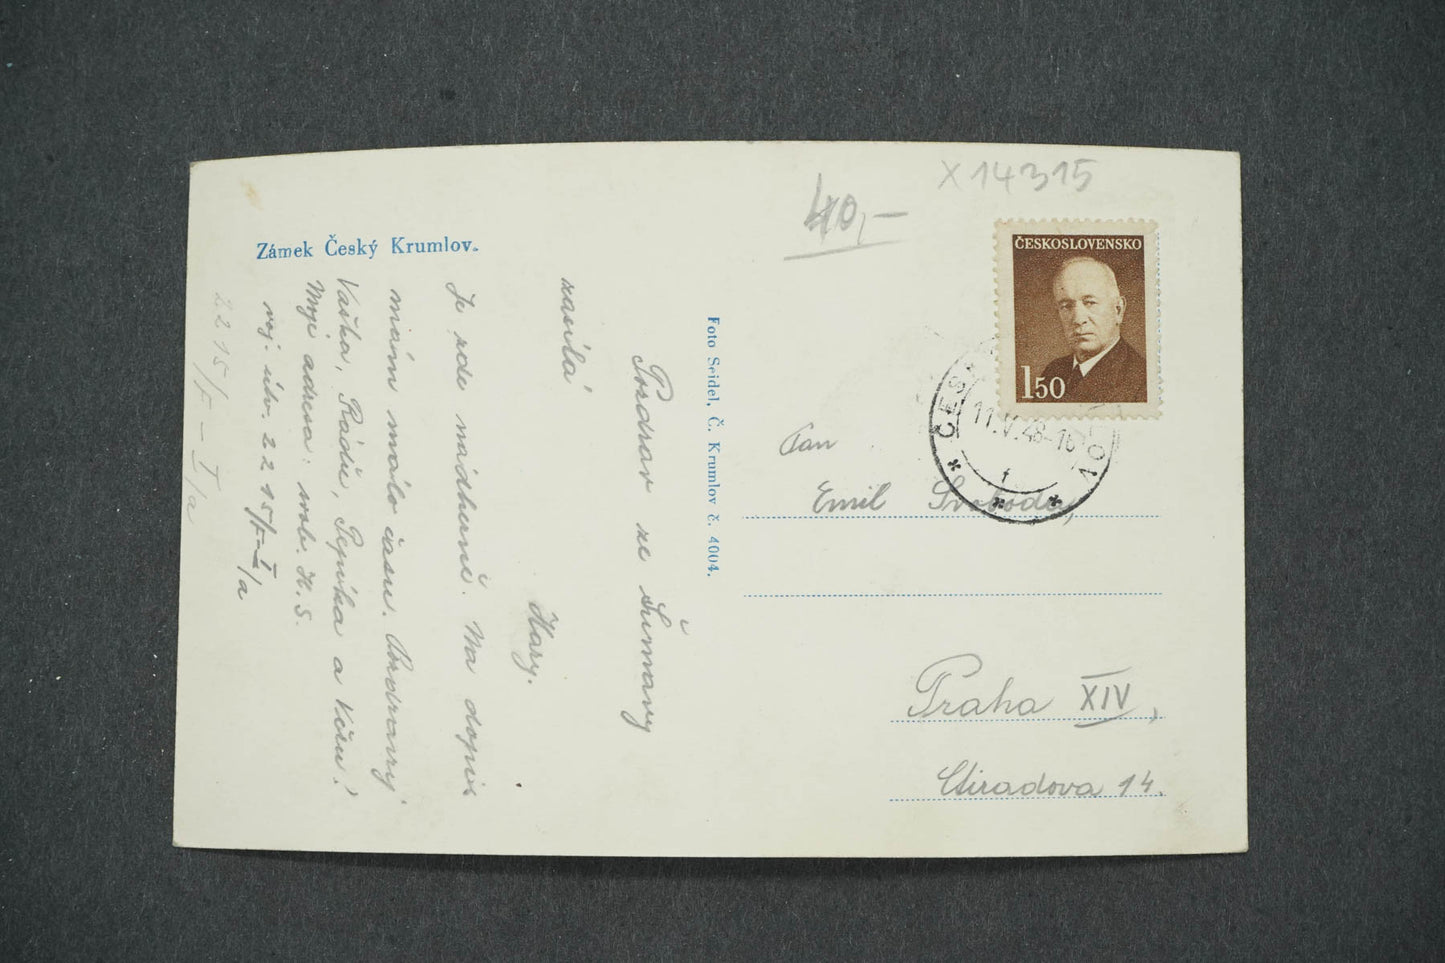 X 14315
40,-
Zámek Český Krumlov.
ČESKOSLOVENSKO
1 50
11.V.48-10
Foto Seidel, Č. Krumlov č. 4004.
Pozdrav ze Šumavy
zasílá
Hary.
Je zde nádherně. Na dopis
mám málo času. Pozdravuj
Vaška, Rádu, Pepíka a
Moje adresa: voj. H. S.
voj. útv. 2215/F-I/a
2215/F-I/a
Pan
Emil Svoboda,
Praha XIV,
Stiradova 14.